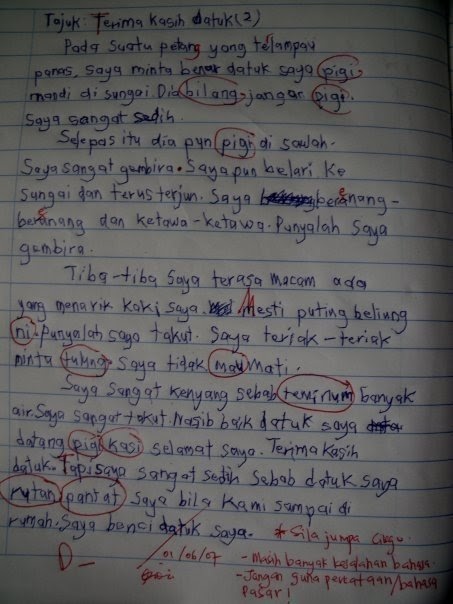 Tajuk: Terima kasih datuk (2)
Pada suatu petang yang telampau
panas, saya minta benar datuk saya pigi
mandi di sungai. Dia bilang jangan pigi.
Saya sangat sedih.
Selepas itu dia pun pigi di sawah.
Saya sangat gembira. Saya pun belari ke
sungai dan terus terjun. Saya berenang-
berenang dan ketawa-ketawa. Punyalah saya
gembira.
Tiba-tiba saya terasa macam ada
yang menarik kaki saya. Mesti puting beliung
ni. Punyalah saya takut. Saya teriak-teriak
minta tulung. Saya tidak mau mati.
Saya sangat kenyang sebab teminum banyak
air. Saya sangat takut. Nasib baik datuk saya
datang pigi kasi selamat saya. Terima kasih
datuk. Tapi saya sangat sedih sebab datuk saya
rutan pantat saya bila kami sampai di
rumah. Saya benci datuk saya.
* Sila jumpa cikgu.
D-
01/06/07
- Masih banyak kesalahan bahasa.
- Jangan guna perkataan/bahasa
pasar!